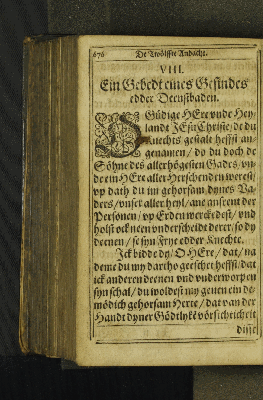 676 De Twölffte Andacht.
VIII.
Ein Gebedt eines Gesindes
edder Deenstbaden.
O Güdige HEre vnde Hey-
lande JEsu Christe / de du
Knechts gestalt heffst an-
genamen / do du doch de
Söhne des allerhögesten Gades / vn-
de ein HEre aller Herschenden werest /
vp dath du im gehorsam dynes Va-
ders / vnser aller heyl / ane anseent der
Personen / vp Erden werckedest / vnd
holst ock neen vnderscheidt derer / so dy
deenen / se syn frye edder Knechte.
Jck bidde dy / O HEre / dat / na
deme du my dartho geeschet heffst / dat
ick anderen deenen vnd vnderworpen
syn schal / du woldest my geuen ein de-
mödich gehorsam Herte / dat van der
Handt dyner Gödtlyke vörsichticheit
disse